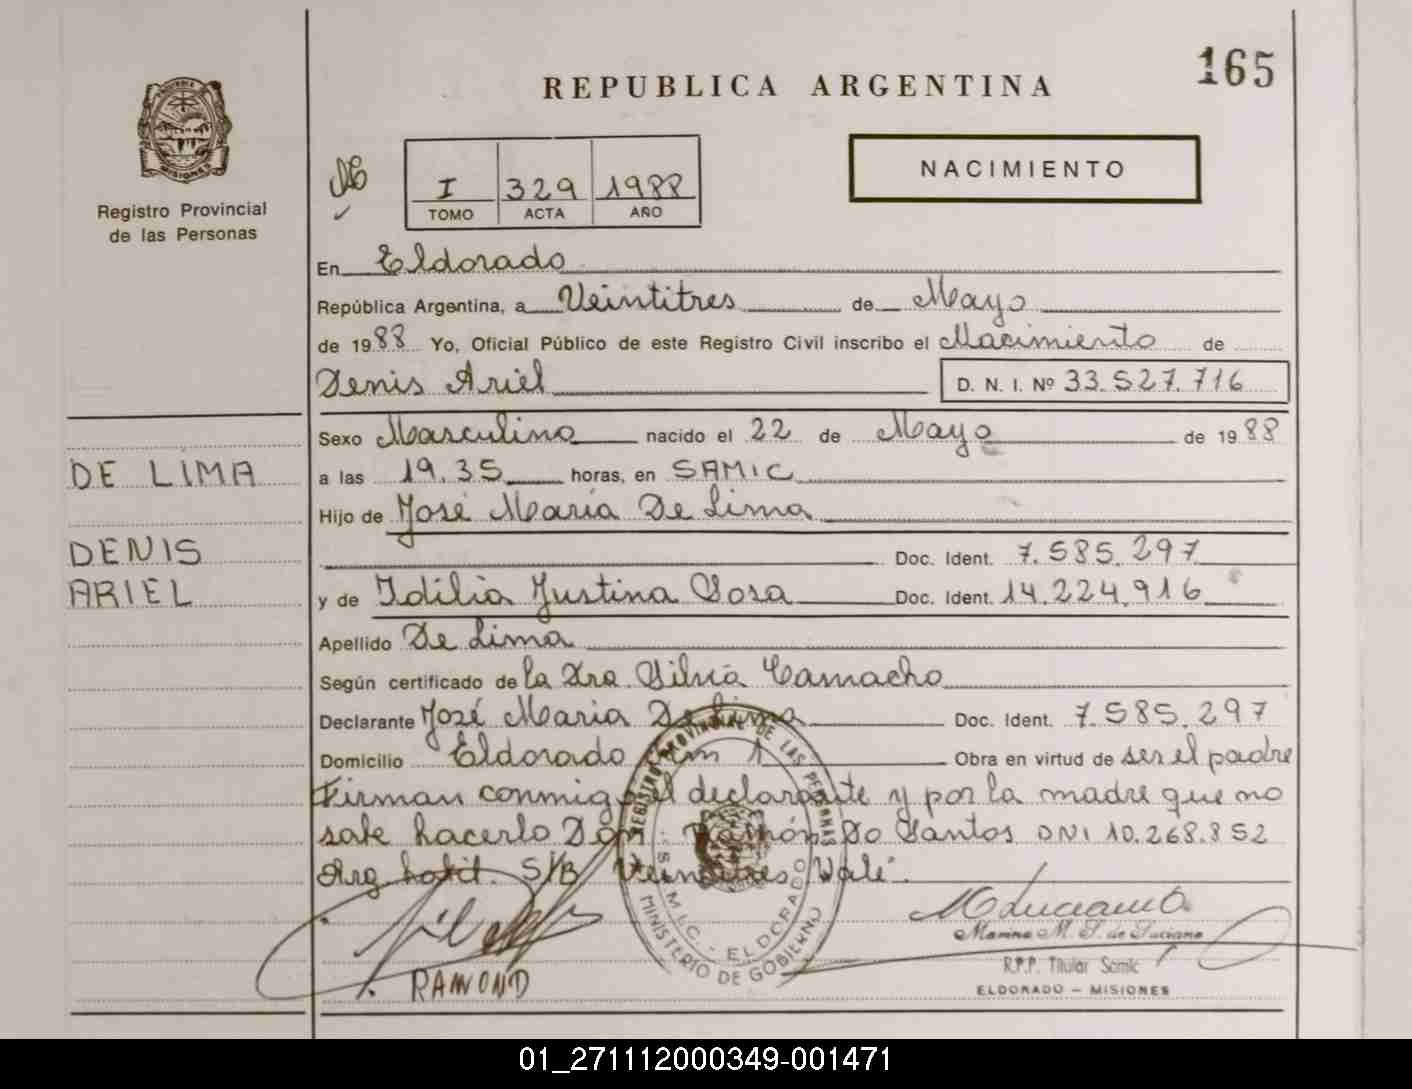 165
REPUBLICA ARGENTINA
MISIONES
Registro Provincial
de las Personas
NACIMIENTO
I 329 1988
TOMO ACTA AÑO
En Eldorado
República Argentina, a Veintitres de Mayo
de 1988 Yo, Oficial Público de este Registro Civil inscribo el Nacimiento de
Denis Ariel D. N. I. Nº 33.527.716
Sexo Masculino nacido el 22 de Mayo de 1988
DE LIMA
a las 19.35 horas, en SAMIC
Hijo de José María De Lima
DENIS
Doc. Ident. 7.585.297
ARIEL
y de Idilia Justina Sosa Doc. Ident. 14.224.916
Apellido De Lima
Según certificado de la Dra Silvia Camacho
Declarante José María De Lima Doc. Ident. 7.585.297
Domicilio Eldorado Km 1 Obra en virtud de ser el padre
Firman conmigo el declarante y por la madre que no
sabe hacerlo Don: Ramón Do Santos DNI 10.268.852
Arg habit. S/B Veintitres Vale.
REGISTRO PROVINCIAL DE LAS PERSONAS
S.A.M.I.C. - ELDORADO
MINISTERIO DE GOBIERNO
Marina M. S. de Luciano
R.P.P. Titular Samic
ELDORADO - MISIONES
RAMOND
01_271112000349-001471